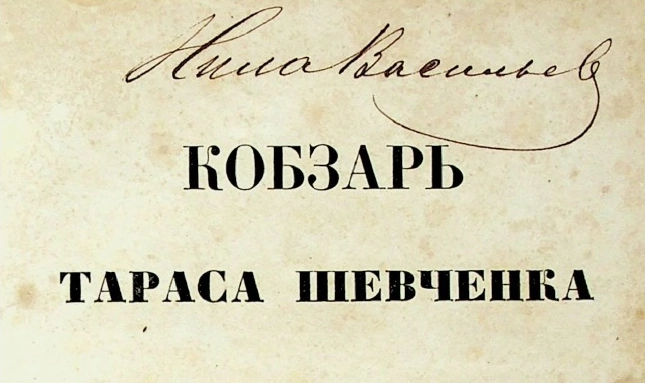 Нила Васильев
КОБЗАРЬ
ТАРАСА ШЕВЧЕНКА